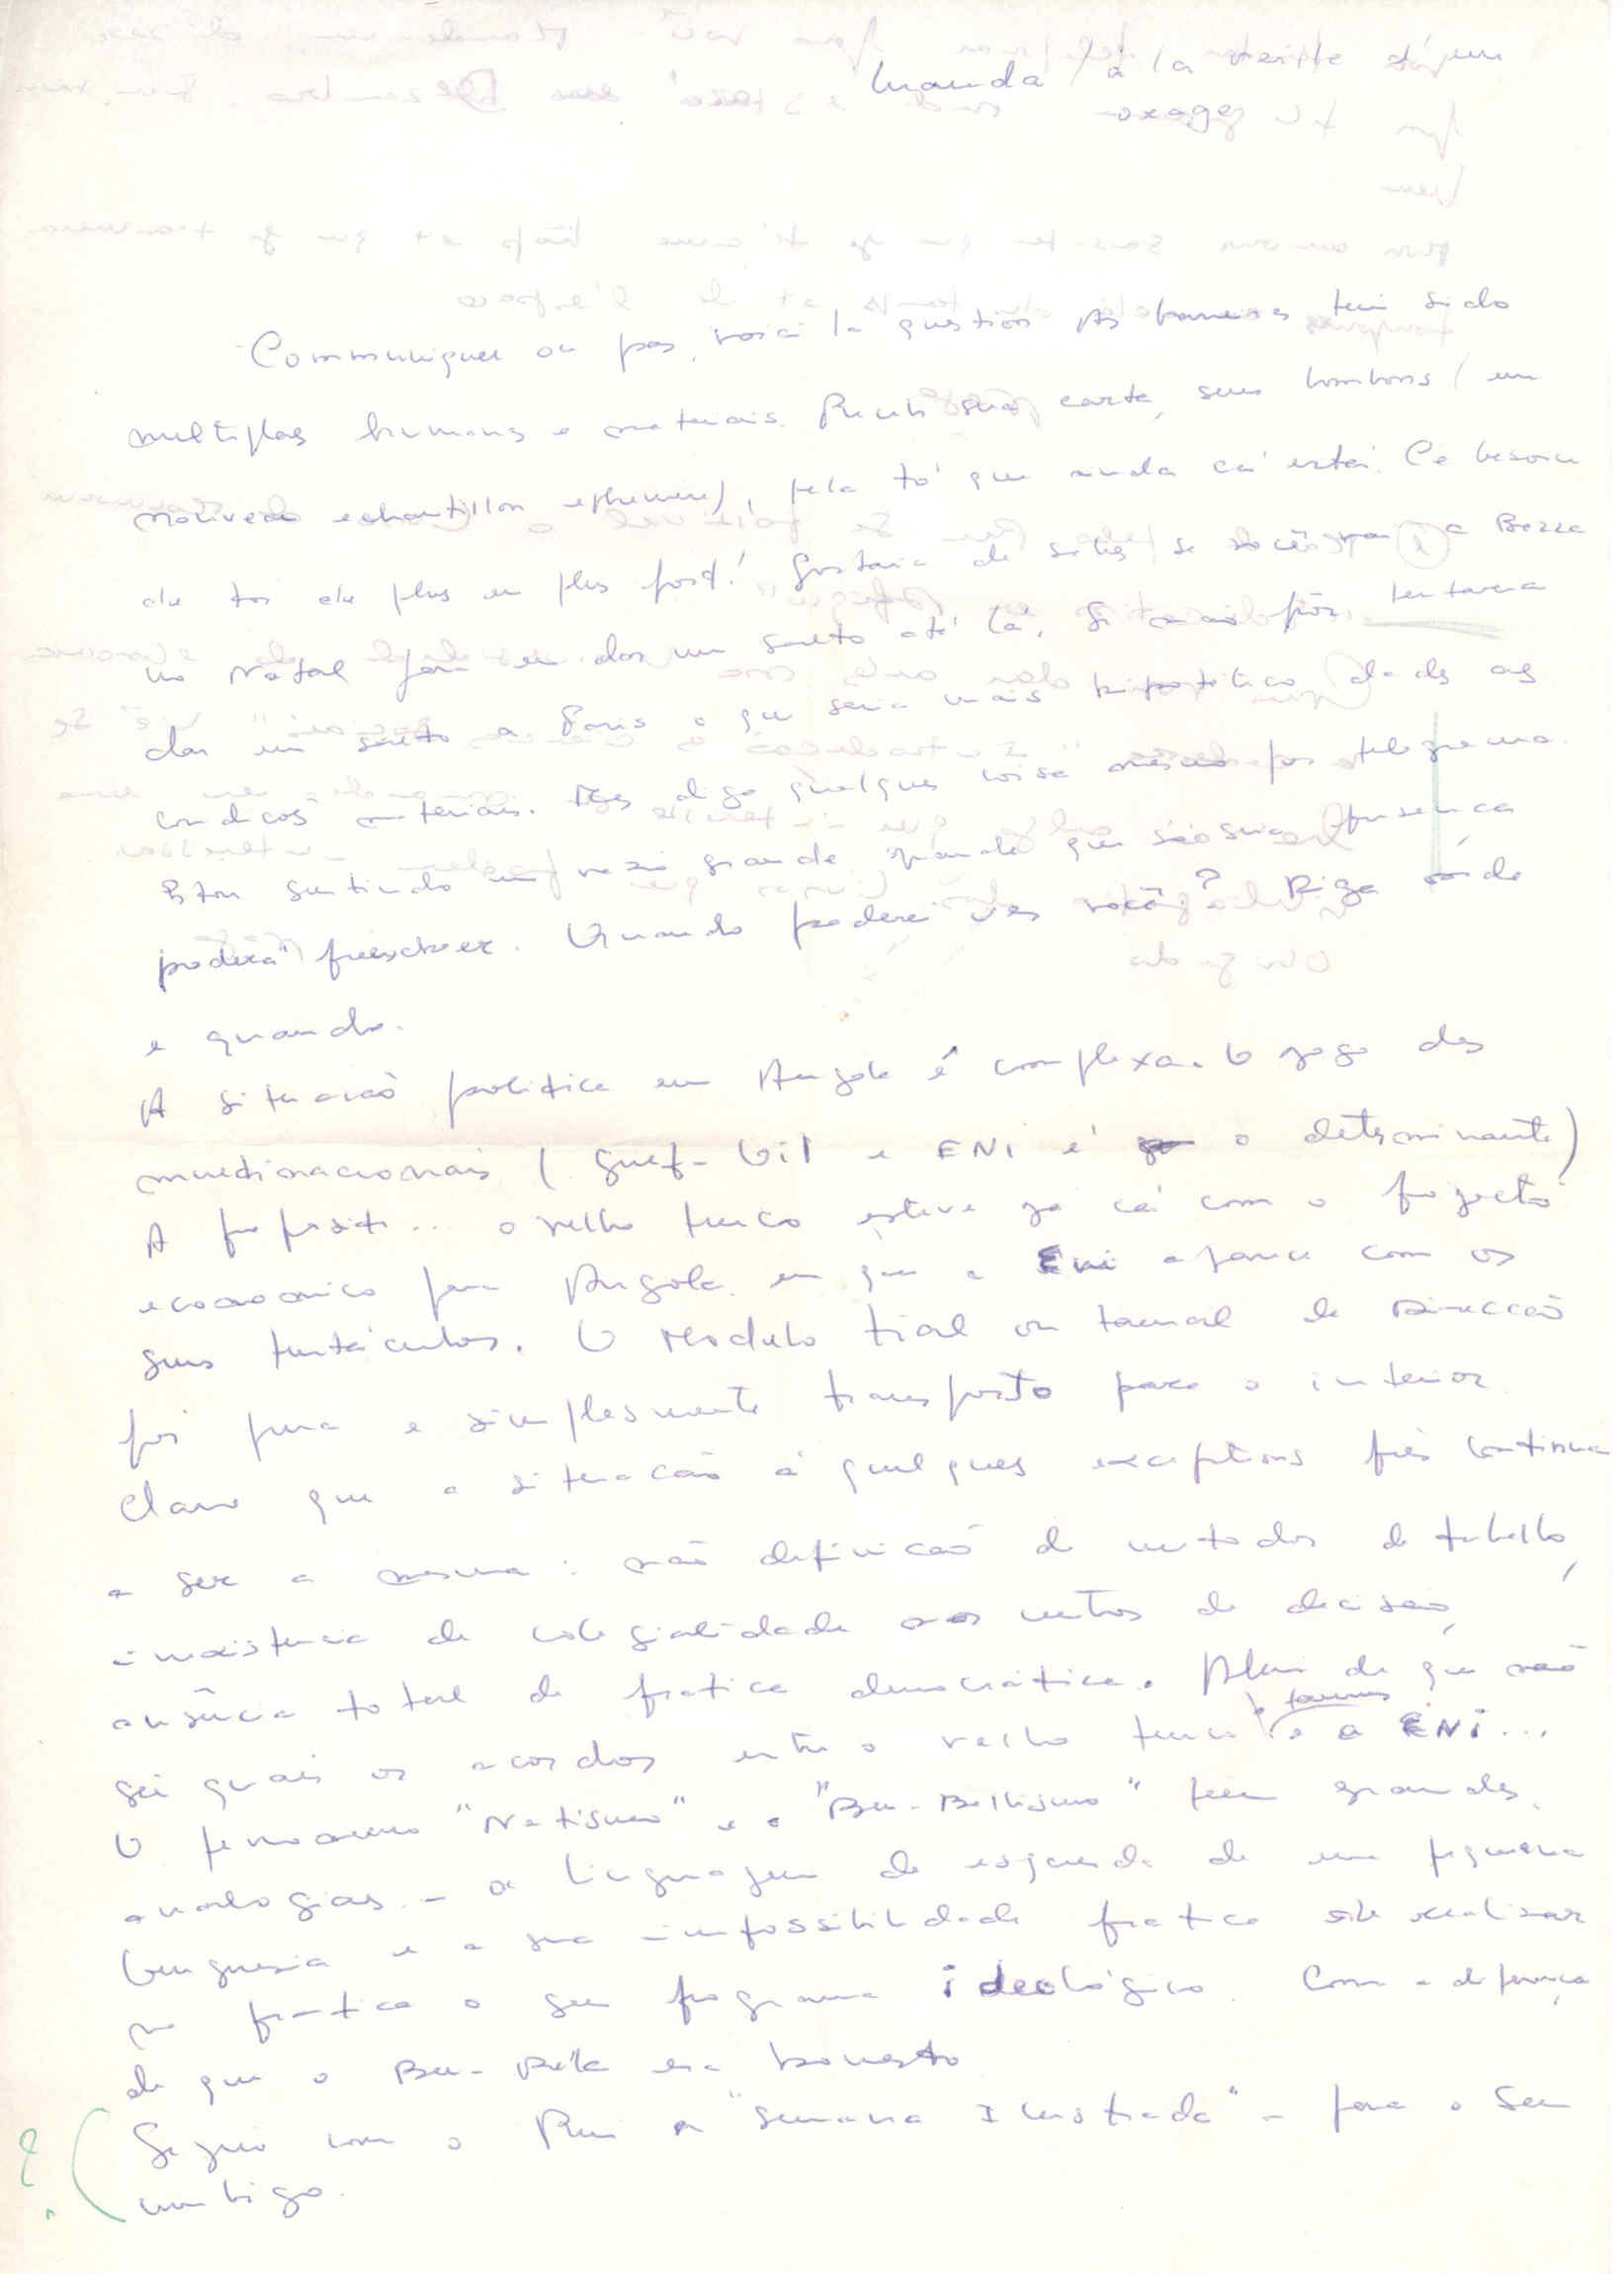 Luanda, à la veille d'un
orage
Communiquer ou pas, voici la question As barreiras tem sido
multiplas humanas e materiais. Recebi sua carta, seus bombons (un
nouveau echantillon ephemere), pela tó que ainda cá está. Ce besoin
de toi de plus en plus fort! Gostaria de saber se você vai a Bezza
no Natal para eu dar um salto até lá. Se não fôr, tentarei
dar um salto a Paris o que seria mais hipotetico dado as
condicoẽs materiais. Mas diga qualquer coisa mesmo por telegrama.
Estou sentindo um vazio grande que só sua presença
poderá preencher. Quando poderei ver você? Diga onde
e quando.
A situação politica em Angola é complexa. O jogo das
multinacionais (Gulf-Oil e ENI é o determinante)
A proposito... o velho turco esteve já cá com o projecto
economico para Angola em que a Eni aparece com os
seus tentáculos. O Modulo de Direccão
foi pura e simplesmente transposto para o interior.
Claro que a situacão à quelques exceptions près continua
a ser a mesma: não definicão de metodos de trabalho,
inexistencia de colegialidade nos centros de decisão,
ausência total de pratica democrática. Alem de que não
sei quais os acordos entre o velho turco e a ENI...
O fenomeno "Netismo" e o "Ben-Bellismo" tem grandes
analogias - a linguagem de esquerda de uma pequena
burguesia e a sua impossibilidade pratica de realizar
na pratica o seu programa ideológico. Com a diferença
de que o Ben-Bella era honesto
Seguiu com o Rui a "Semana Ilustrada" - para o seu
umbigo.
?